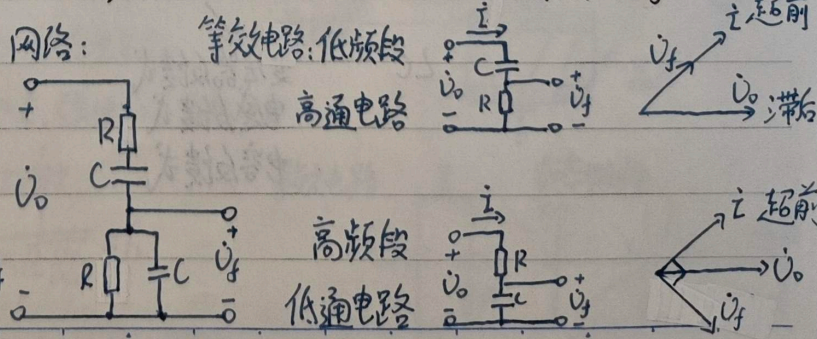 网络: 等效电路:低频段
高通电路
高频段
低通电路
+
R
C
U̇₀
R
C
+
U̇f
-
-
i̇
+
C
U̇₀
R
+
U̇f
-
-
i̇ 超前
U̇f
U̇₀ 滞后
i̇
+
R
U̇₀
C
+
U̇f
-
-
i̇ 超前
U̇₀
U̇f